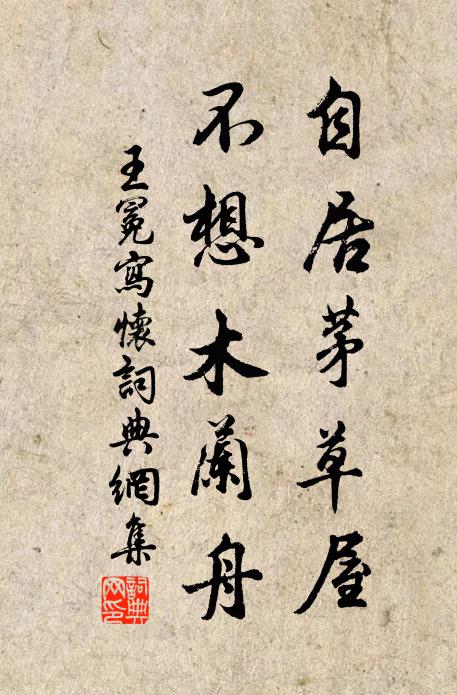 自居茅草屋
不想木蘭舟
王冕寫懷詞典網集
詞典
网印